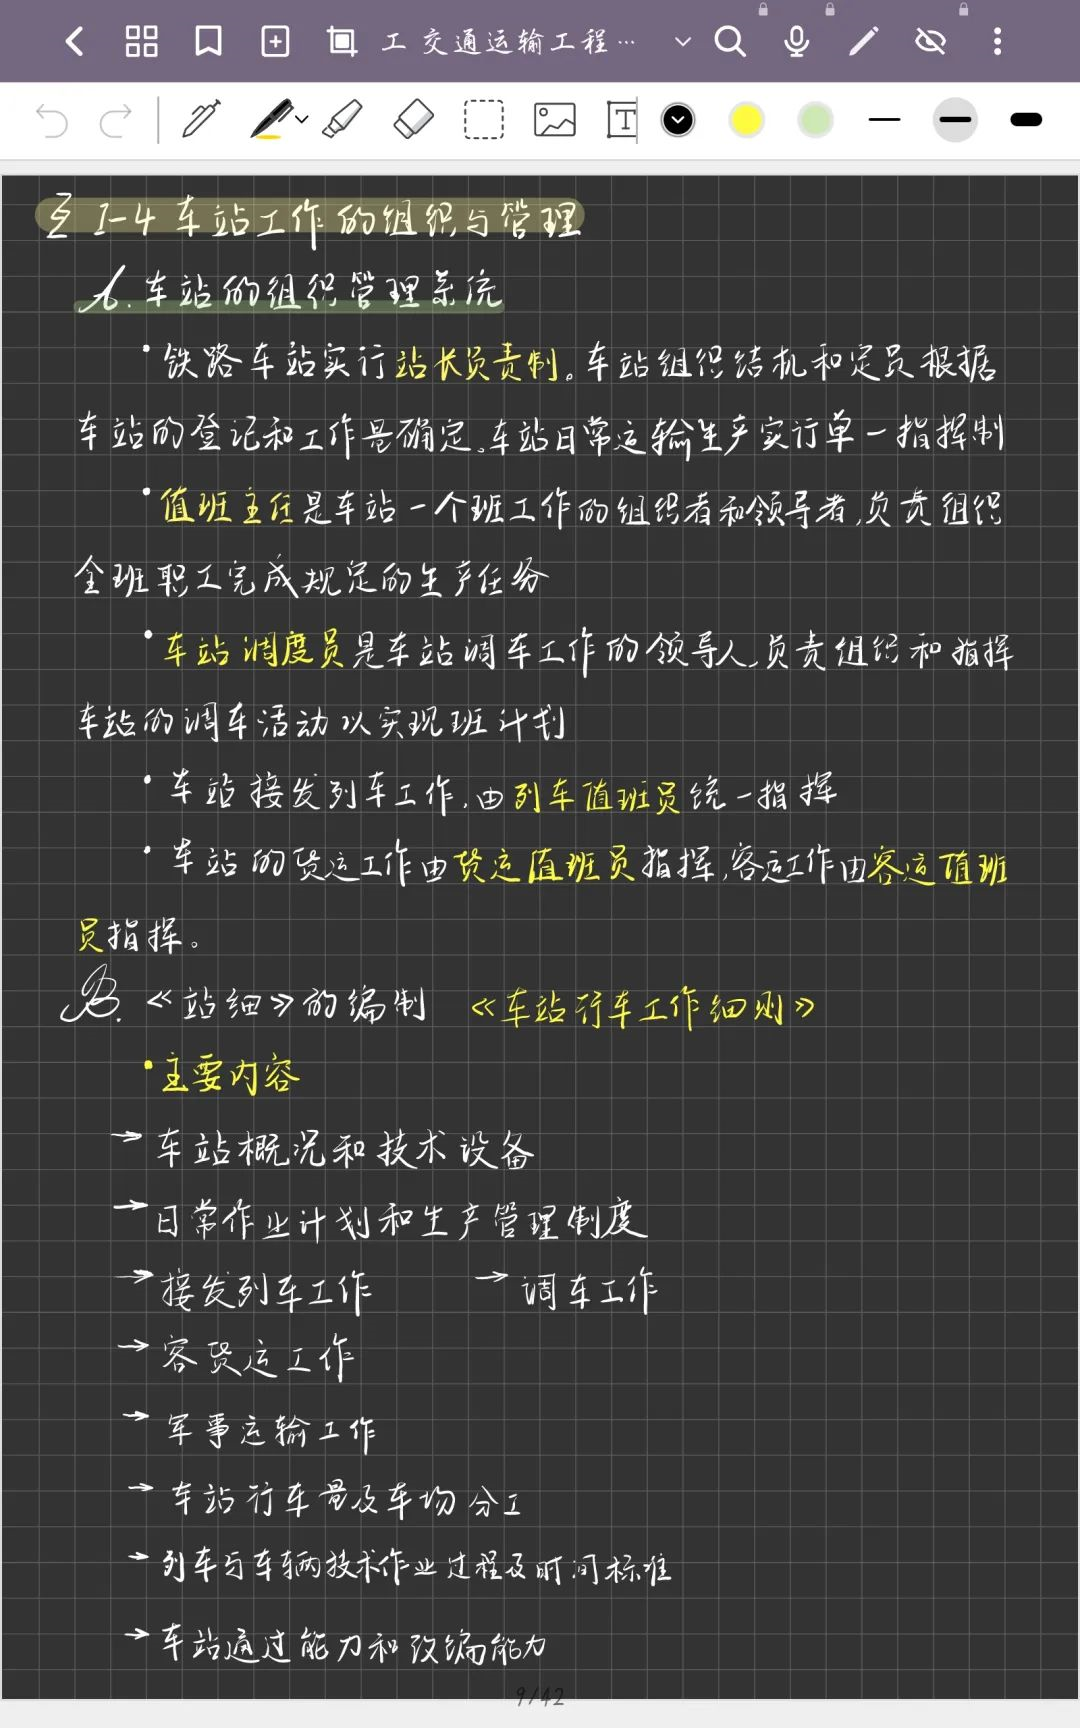 工 交通运输工程…
§ 1-4 车站工作的组织与管理
A. 车站的组织管理系统
·铁路车站实行站长负责制。车站组织结机和定员根据
车站的登记和工作量确定。车站日常运输生产实行单一指挥制
·值班主任是车站一个班工作的组织者和领导者,负责组织
全班职工完成规定的生产任务
·车站调度员是车站调车工作的领导人,负责组织和指挥
车站的调车活动以实现班计划
·车站接发列车工作,由列车值班员统一指挥
·车站的货运工作由货运值班员指挥,客运工作由客运值班
员指挥。
B. 《站细》的编制 《车站行车工作细则》
·主要内容
→车站概况和技术设备
→日常作业计划和生产管理制度
→接发列车工作 →调车工作
→客货运工作
→军事运输工作
→车站行车量及车场分工
→列车与车辆技术作业过程及时间标准
→车站通过能力和改编能力
9/42